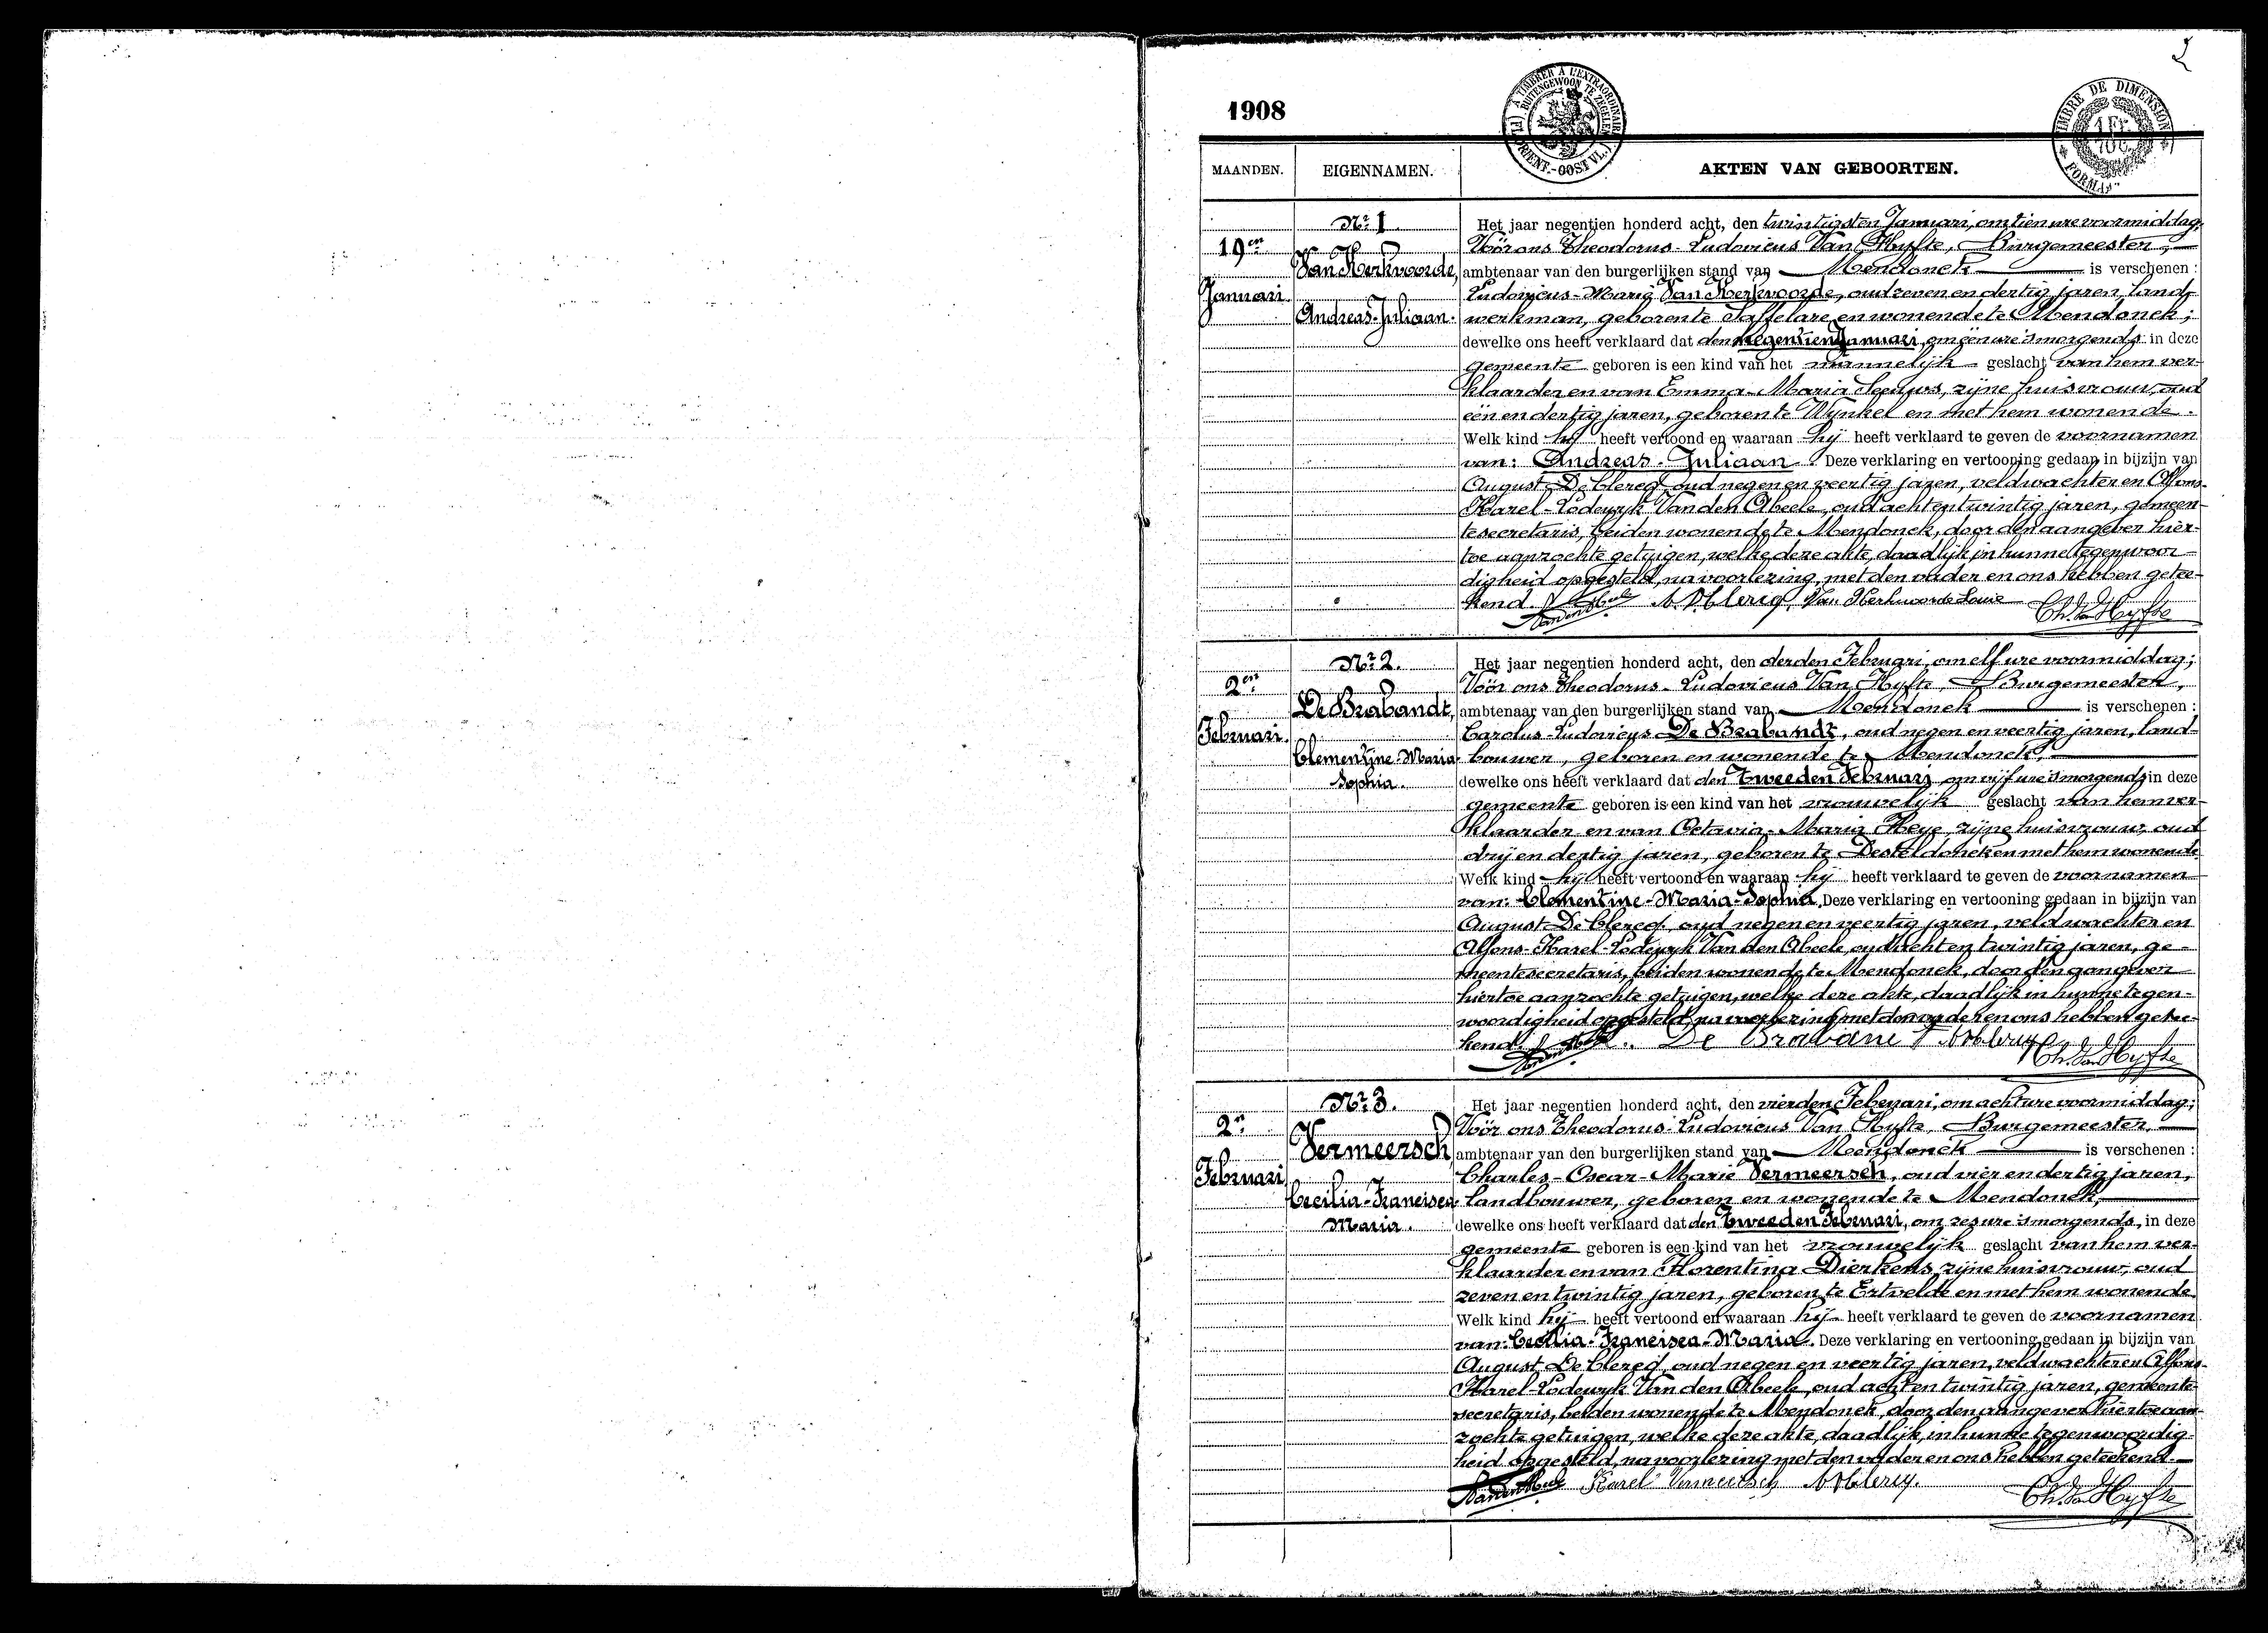 2
1908
A TIMBRER À L'EXTRAORDINAIRE
BUITENGEWOON TE ZEGELEN
(FL. ORIENT.-OOST VL.)
TIMBRE DE DIMENSION
1 FR.
FORMAAT
MAANDEN. EIGENNAMEN. AKTEN VAN GEBOORTEN.
Nr 1.
19en
Januari
Van Kerkvoorde,
Andreas-Juliaan.
Het jaar negentien honderd acht, den twintigsten Januari, om tien ure voormiddag,
Vóór ons Theodorus-Ludovicus Van Hyfte, Burgemeester,
ambtenaar van den burgerlijken stand van Mendonck is verschenen :
Ludovicus-Marie Van Kerkvoorde, oud zeven en dertig jaren, land-
werkman, geboren te Saffelare en wonende te Mendonck;
dewelke ons heeft verklaard dat den negentien Januari, om één ure 's morgends in deze
gemeente geboren is een kind van het mannelijk geslacht van hem ver-
klaarder en van Emma-Maria Seeuws, zijne huisvrouw, oud
één en dertig jaren, geboren te Wynkel en met hem wonende.
Welk kind hij heeft vertoond en waaraan hij heeft verklaard te geven de voornamen
van: Andreas-Juliaan. Deze verklaring en vertooning gedaan in bijzijn van
August De Clercq oud negen en veertig jaren, veldwachter en Alfons-
Karel-Lodewyk Van den Abeele, oud acht en twintig jaren, gemeen-
tesecretaris, beiden wonende te Mendonck, door den aangever hier-
toe aanzochte getuigen, welke deze akte, daadlijk in hunne tegenwoor-
digheid opgesteld, na voorlezing, met den vader en ons hebben getee-
kend. Vanden Abeele A. D Clercq, Van Kerkvoorde Louis Th. Van Hyfte
Nr 2.
2en
Februari.
De Brabandt,
Clementine-Maria-
Sophia.
Het jaar negentien honderd acht, den derden Februari, om elf ure voormiddag;
Vóór ons Theodorus-Ludovicus Van Hyfte, Burgemeester,
ambtenaar van den burgerlijken stand van Mendonck is verschenen :
Carolus-Ludovicus De Brabandt, oud negen en veertig jaren, land-
bouwer, geboren en wonende te Mendonck,
dewelke ons heeft verklaard dat den tweeden Februari om vijf ure 's morgends in deze
gemeente geboren is een kind van het vrouwelijk geslacht van hem ver-
klaarder en van Octavia-Maria Heye, zijne huisvrouw, oud
drij en dertig jaren, geboren te Desteldonck en met hem wonende
Welk kind hij heeft vertoond en waaraan hij heeft verklaard te geven de voornamen
van: Clementine-Maria-Sophia. Deze verklaring en vertooning gedaan in bijzijn van
August De Clercq, oud negen en veertig jaren, veldwachter en
Alfons-Karel-Lodewyk Van den Abeele, oud acht en twintig jaren, ge-
meentesecretaris, beiden wonende te Mendonck, door den aangever
hiertoe aanzochte getuigen, welke deze akte, daadlijk in hunne tegen-
woordigheid opgesteld, na voorlezing, met den vader en ons hebben getee-
kend. Vanden Abeele. De Brabant A. D Clercq Th. Van Hyfte
Nr 3.
2n
Februari
Vermeersch
Cecilia-Francisca-
Maria.
Het jaar negentien honderd acht, den vierden Februari, om acht ure voormiddag;
Vóór ons Theodorus-Ludovicus Van Hyfte, Burgemeester,
ambtenaar van den burgerlijken stand van Mendonck is verschenen :
Charles-Oscar-Marie Vermeersch, oud vier en dertig jaren,
landbouwer, geboren en wonende te Mendonck,
dewelke ons heeft verklaard dat den tweeden Februari, om zes ure 's morgends, in deze
gemeente geboren is een kind van het vrouwelijk geslacht van hem ver-
klaarder en van Florentina Dierkens, zijne huisvrouw, oud
zeven en twintig jaren, geboren te Ertvelde en met hem wonende
Welk kind hij heeft vertoond en waaraan hij heeft verklaard te geven de voornamen
van: Cecilia-Francisca-Maria. Deze verklaring en vertooning gedaan in bijzijn van
August De Clercq, oud negen en veertig jaren, veldwachter en Alfons-
Karel-Lodewyk Van den Abeele, oud acht en twintig jaren, gemeente-
secretaris, beiden wonende te Mendonck, door den aangever hiertoe aan-
zochte getuigen, welke deze akte, daadlijk, in hunne tegenwoordig-
heid opgesteld, na voorlezing met den vader en ons hebben geteekend.
Vanden Abeele Karel Vermeersch A. D Clercq. Th. Van Hyfte